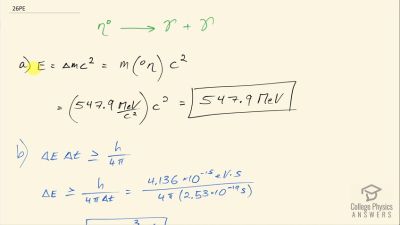 26PE
η⁰ → γ + γ
a) E = Δmc² = m(⁰η) c²
= (547.9 MeV/c²) c² = 547.9 MeV
b) ΔE Δt ≥ h/4π
ΔE ≥ h/4πΔt = 4.136×10⁻¹⁵ eV·s / 4π(2.53×10⁻¹⁹ s)
College Physics
ANSWERS